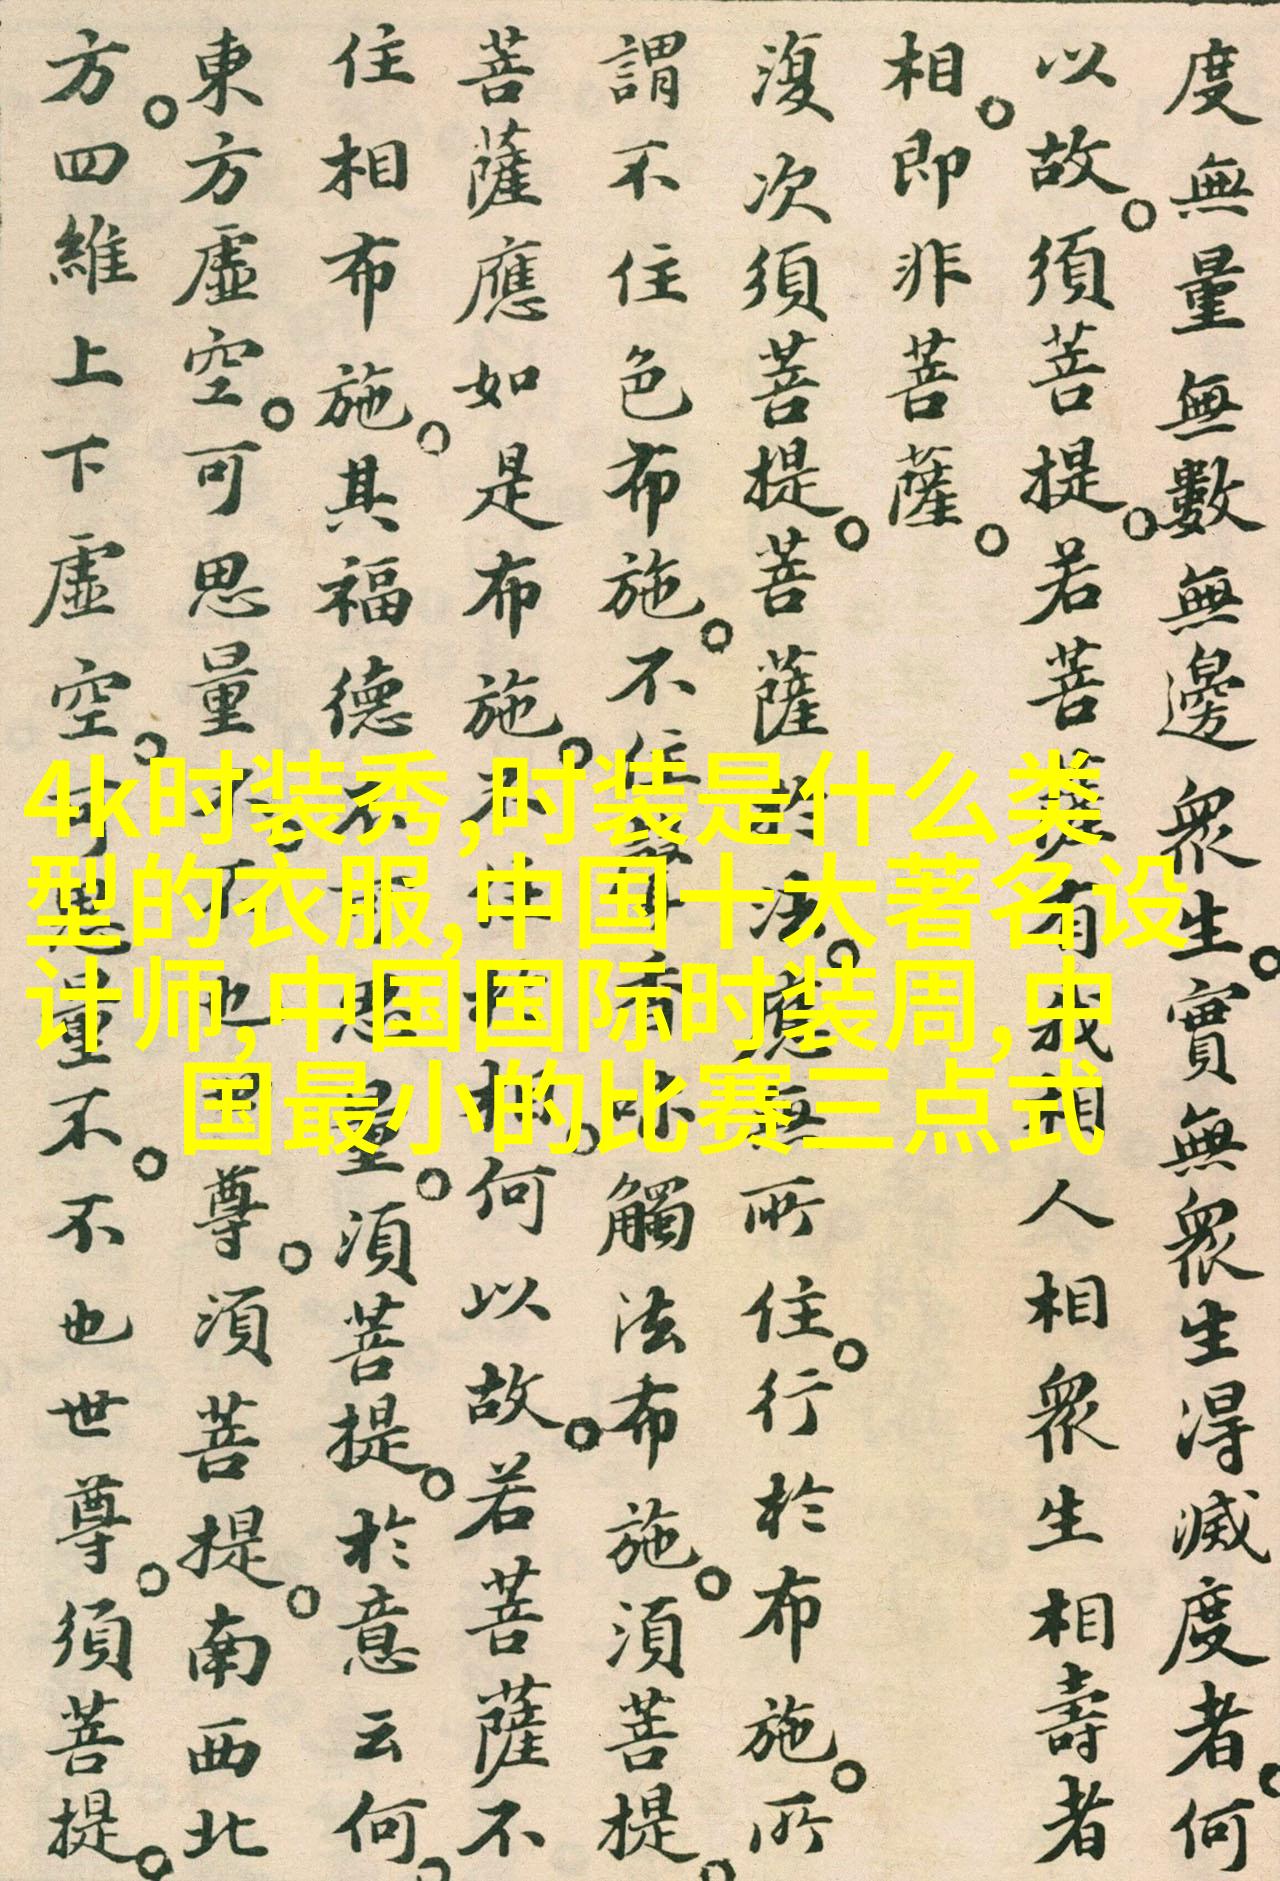 度無量無數無邊眾生。實無眾生得滅度者。何
以故。須菩提。若菩薩有我相人相眾生相壽者
相。即非菩薩。
復次須菩提。菩薩於法。應無所住。行於布施。所
謂不住色布施。不住聲香味觸法布施。須菩提。
菩薩應如是布施。不住於相。何以故。若菩薩不
住相布施。其福德不可思量。須菩提。於意云何。
東方虛空。可思量不。不也世尊。須菩提。南西北
方。四維上下虛空。可思量不。不也世尊。須菩提。
4k时装秀,时装是什么类
型的衣服,中国十大著名设
计师,中国国际时装周,中
国最小的比赛三点式